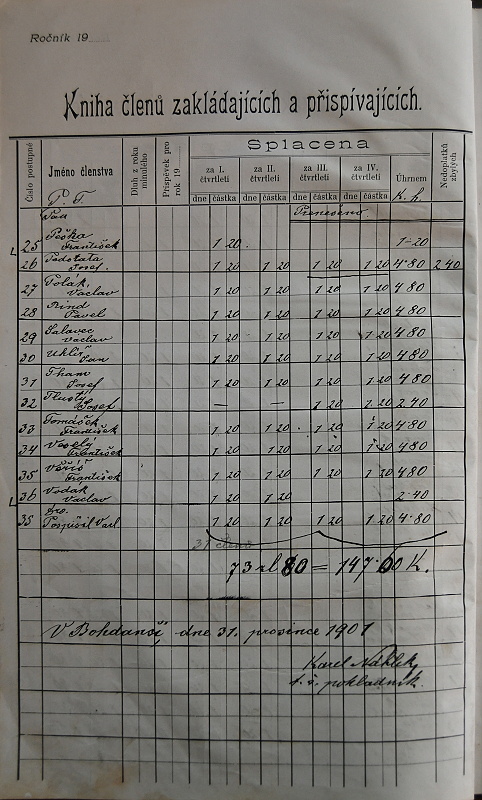 Ročník 19
Kniha členů zakládajících a přispívajících.
Číslo postupné Jméno členstva Dluh z roku minulého Příspěvek pro rok 19 Splacena Nedoplatků zbylých
za I. čtvrtletí za II. čtvrtletí za III. čtvrtletí za IV. čtvrtletí Úhrnem
dne částka dne částka dne částka dne částka K. h.
P. T.
Pan Přeneseno
25 Peška František 1 20 1-20
26 Podstata Josef 1 20 1 20 1 20 1 20 4·80 2 40
27 Polák, Václav 1 20 1 20 1 20 1 20 4 80
28 Rind Pavel 1 20 1 20 1 20 1 20 4 80
29 Salavec Václav 1 20 1 20 1 20 1 20 4 80
30 Uhlíř Jan 1 20 1 20 1 20 1 20 4 80
31 Tham Josef 1 20 1 20 1 20 1 20 4 80
32 Tlustý Josef — — 1 20 1 20 2 40
33 Tomášek František 1 20 1 20 1 20 1 20 4·80
34 Veselý František 1 20 1 20 1 20 1 20 4 80
35 František 1 20 1 20 1 20 1 20 4 80
36 Vodák Václav 1 20 1 20 2·40
38 Pospíšil 1 20 1 20 1 20 1 20 4·80
37 členů
73 zl 80 = 147·60 K.
V Bohdanči, dne 31. prosince 1901
Karel Náhlík,
t. č. pokladník.